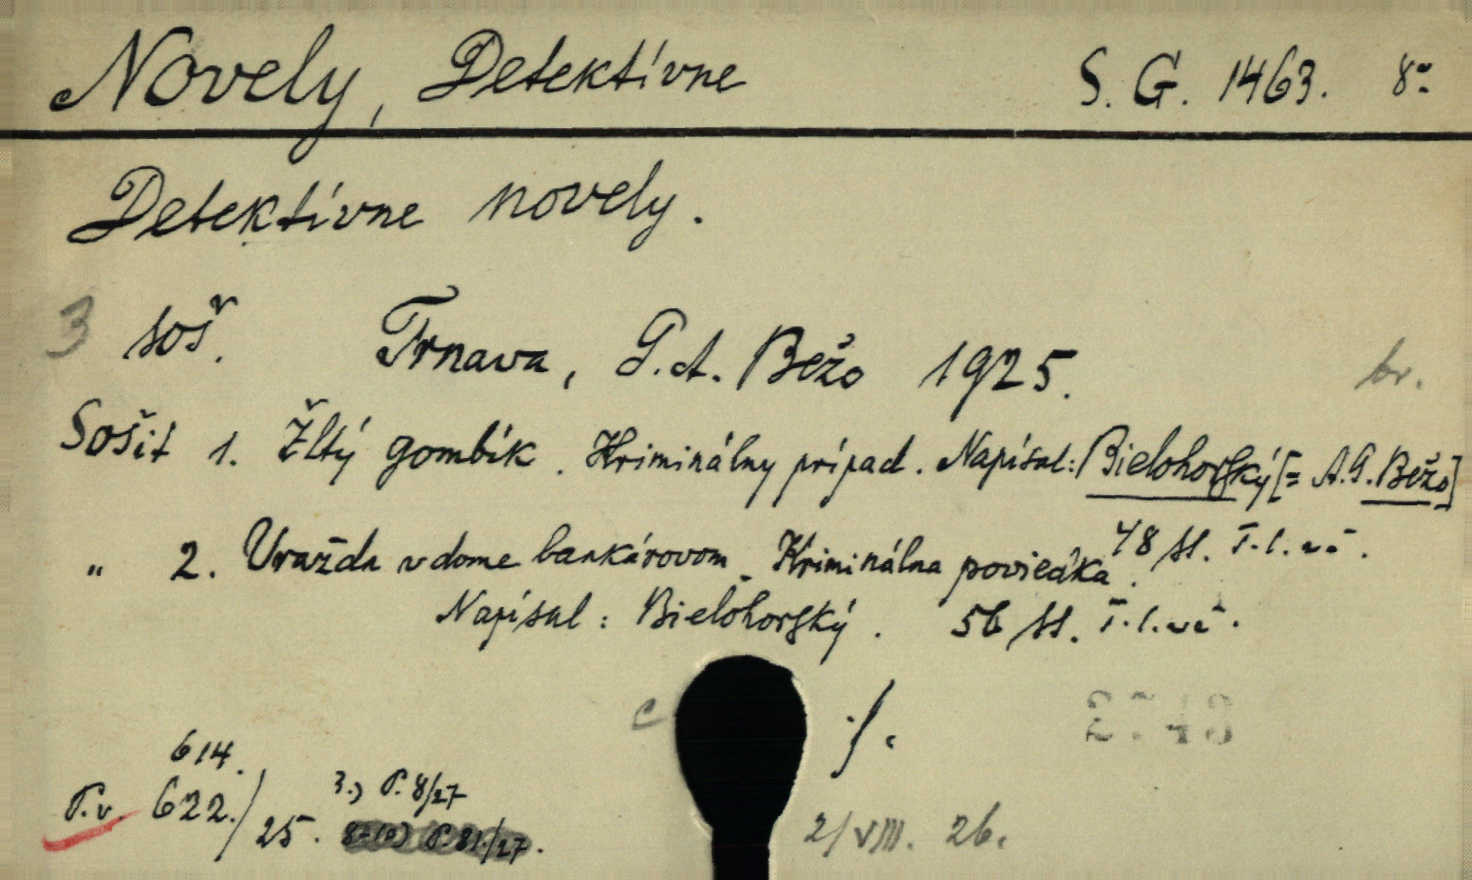 Novely, Detektívne S. G. 1463. 8º
Detektívne novely.
3 soš. Trnava, G. A. Bežo 1925. br.
Sošit 1. Žltý gombík. Kriminálny prípad. Napísal: Bielohorský [= A. G. Bežo]
48 ss. T. l. už.
„ 2. Uražda v dome bankárovom. Kriminálna poviedka.
Napísal: Bielohorský. 56 ss. T. l. už.
c ./.
614.
P. v. 622./25. 3.) P. 8/27
2/VIII. 26.